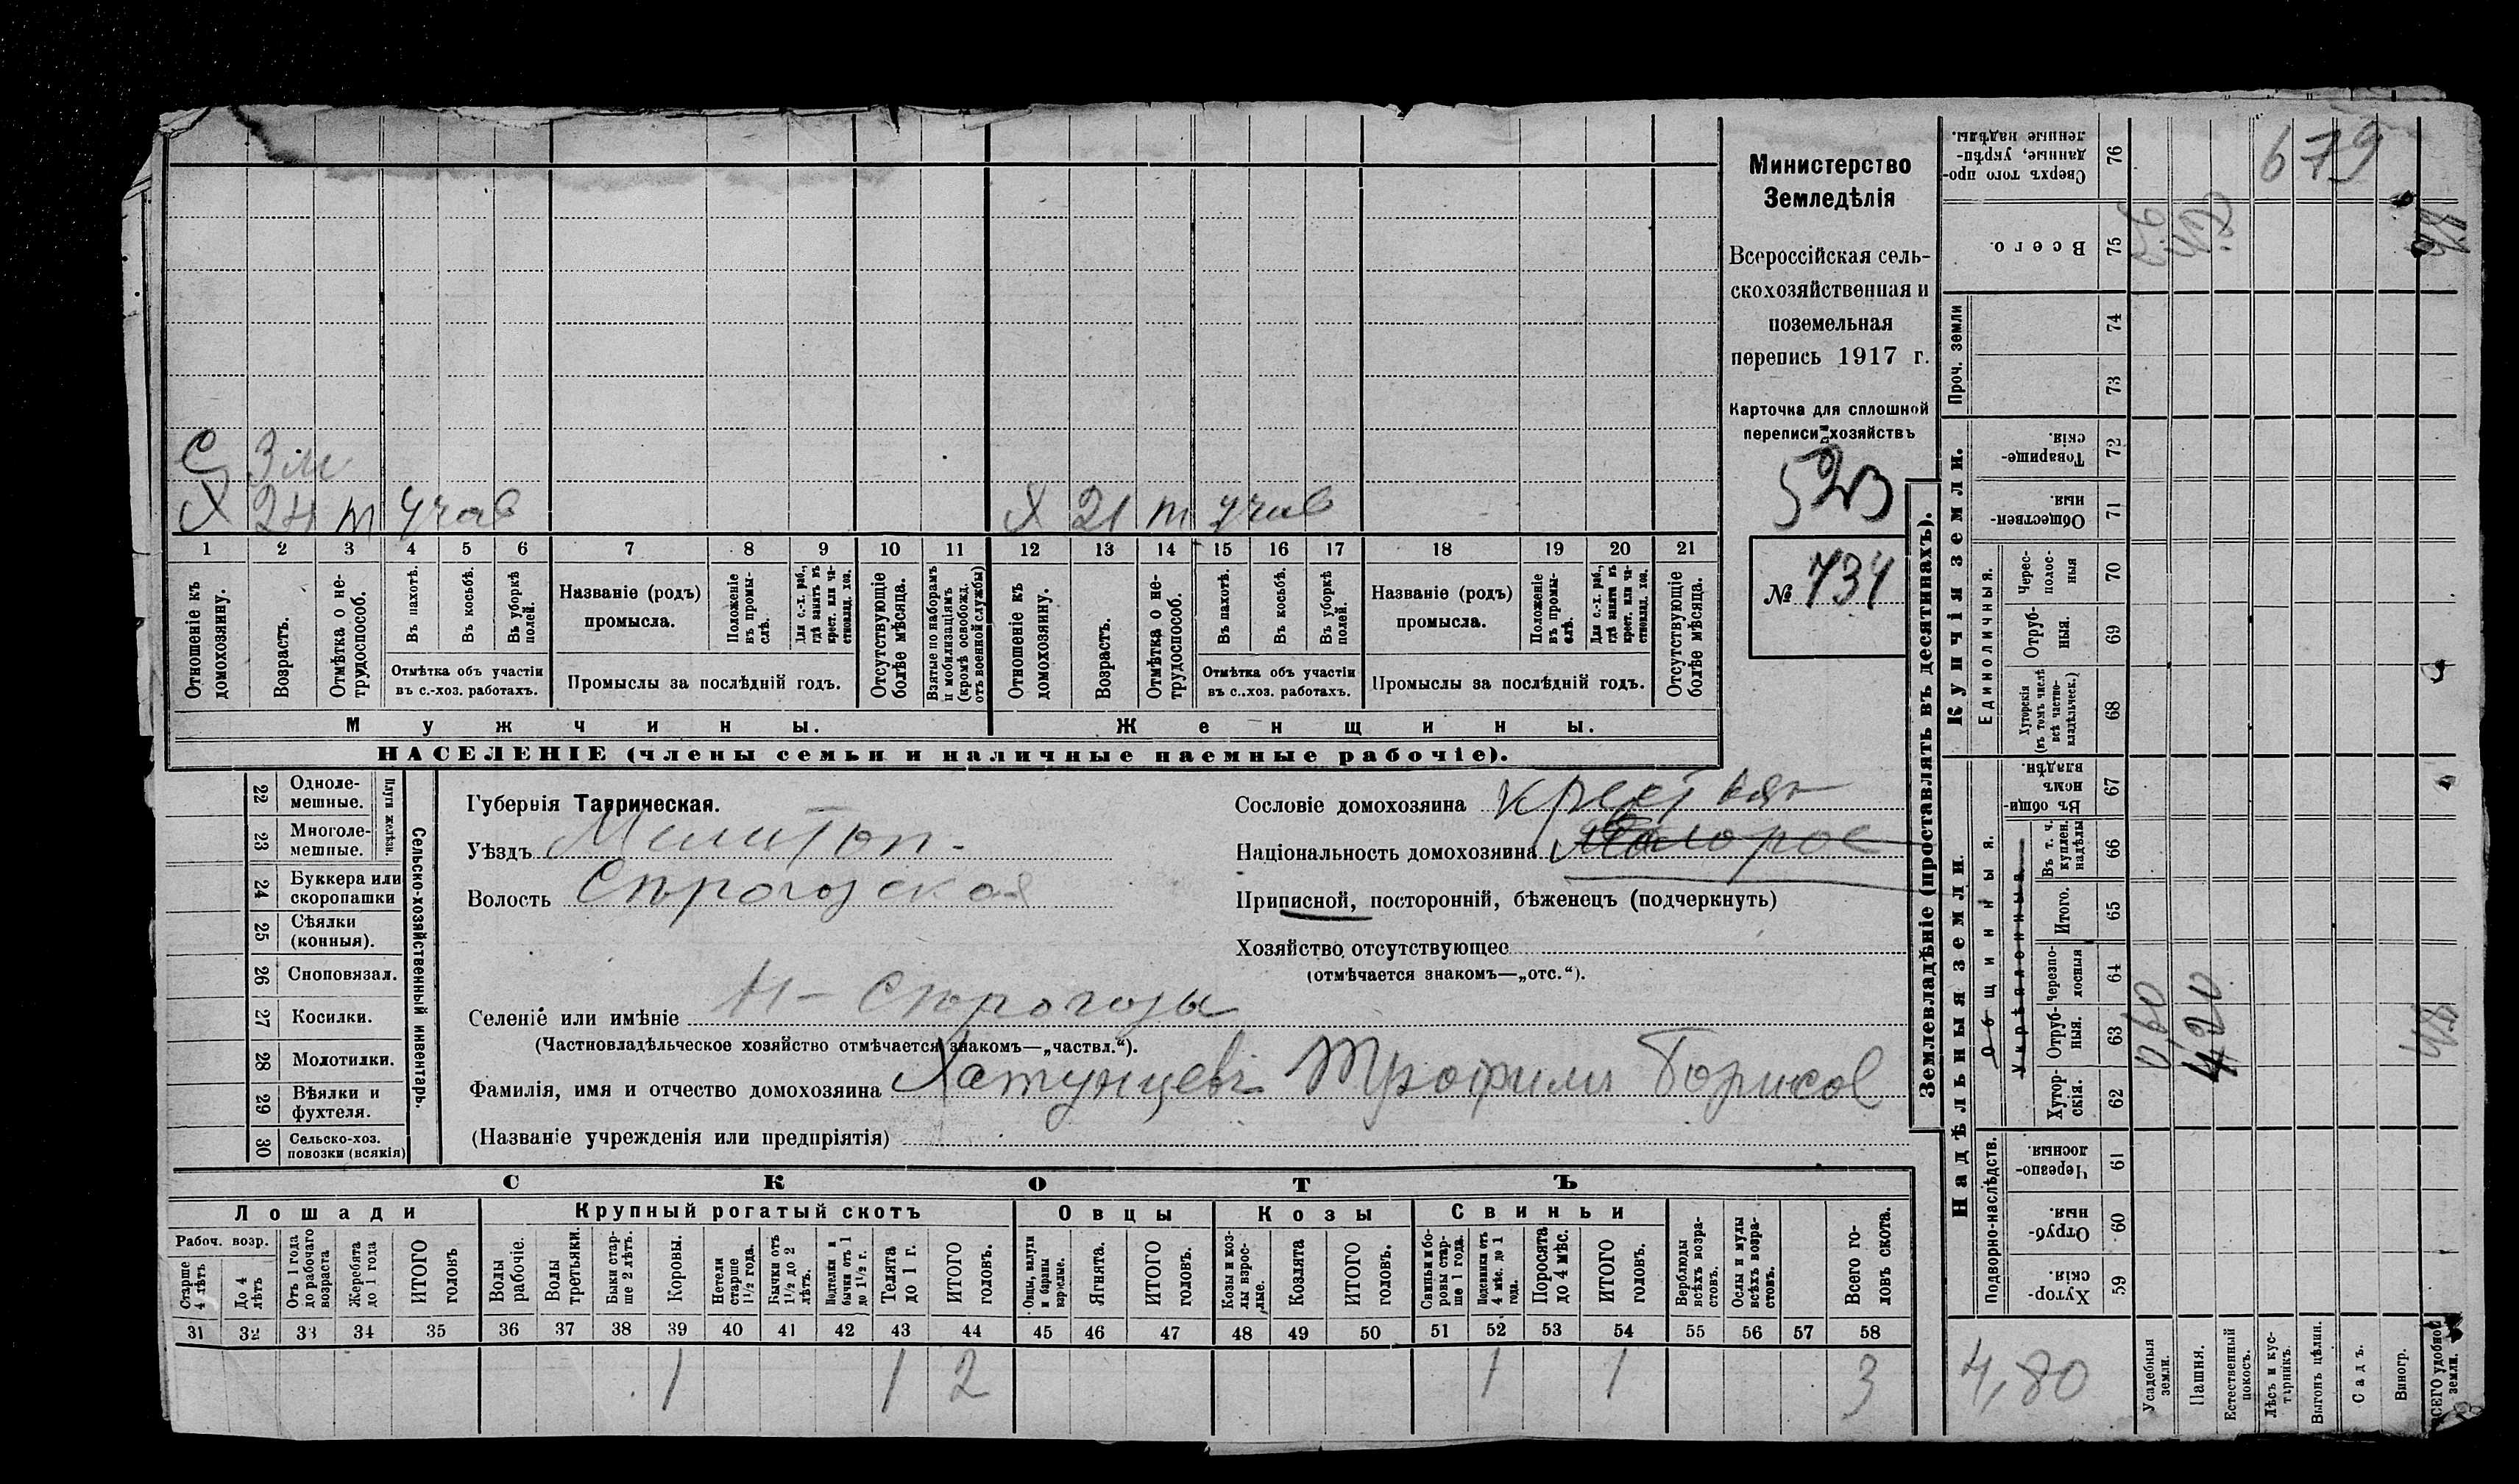 Министерство
Земледѣлія
Всероссійская сель-
скохозяйственная и
поземельная
перепись 1917 г.
Карточка для сплошной
переписи хозяйствъ
523
№ 734
С 3 м
Х 24 т участ
Х 21 т участ
1 2 3 4 5 6 7 8 9 10 11 12 13 14 15 16 17 18 19 20 21
Отношеніе къ домохозяину.
Возрастъ.
Отмѣтка о не-трудоспособ.
Въ пахотѣ.
Въ косьбѣ.
Въ уборкѣ полей.
Отмѣтка объ участіи
въ с.-хоз. работахъ.
Названіе (родъ)
промысла.
Положеніе въ промы-слѣ.
Для с.-х. раб., гдѣ занятъ въ крест. или ча-стновлад. хоз.
Промыслы за послѣдній годъ.
Отсутствующіе болѣе мѣсяца.
Взятые по наборамъ и мобилизаціямъ (кромѣ освобожд. отъ военной службы)
Отношеніе къ домохозяину.
Возрастъ.
Отмѣтка о не-трудоспособ.
Въ пахотѣ.
Въ косьбѣ.
Въ уборкѣ полей.
Отмѣтка объ участіи
въ с.-хоз. работахъ.
Названіе (родъ)
промысла.
Положеніе въ промы-слѣ.
Для с.-х. раб., гдѣ занята въ крест. или ча-стновлад. хоз.
Промыслы за послѣдній годъ.
Отсутствующіе болѣе мѣсяца.
Мужчины.
Женщины.
НАСЕЛЕНІЕ (члены семьи и наличные наемные рабочіе).
22 Одноле-мешные.
23 Многоле-мешные.
Плуги желѣзн.
24 Буккера или скоропашки
25 Сѣялки (конныя).
26 Сноповязал.
27 Косилки.
28 Молотилки.
29 Вѣялки и фухтеля.
30 Сельско-хоз. повозки (всякія)
Сельско-хозяйственный инвентарь.
Губернія Таврическая.
Уѣздъ Мелитоп-
Волость Сѣрогозская
Сословіе домохозяина крестьян
Національность домохозяина Малорос
Приписной, посторонній, бѣженецъ (подчеркнуть)
Хозяйство отсутствующее
(отмѣчается знакомъ—„отс.“).
Селеніе или имѣніе Н-Сѣрогозы
(Частновладѣльческое хозяйство отмѣчается знакомъ—„частвл.“).
Фамилія, имя и отчество домохозяина Хатунцевъ Трофимъ Борисов
(Названіе учрежденія или предпріятія)
СКОТЪ
Лошади
Крупный рогатый скотъ
Овцы
Козы
Свиньи
Рабоч. возр.
Старше 4 лѣтъ
До 4 лѣтъ
Отъ 1 года до рабочаго возраста
Жеребята до 1 года
ИТОГО головъ
Волы рабочіе.
Волы третьяки.
Быки стар-ше 2 лѣтъ.
Коровы.
Нетели старше 1½ года.
Бычки отъ 1½ до 2 лѣтъ.
Подтелки и бычки отъ 1 до 1½ г.
Телята до 1 г.
ИТОГО головъ.
Овцы, валухи и бараны взрослые.
Ягнята.
ИТОГО головъ.
Козы и коз-лы взрос-лые.
Козлята
ИТОГО головъ.
Свиньи и бо-ровы стар-ше 1 года.
Подсвинки отъ 4 мѣс. до 1 года.
Поросята до 4 мѣс.
ИТОГО головъ.
Верблюды всѣхъ возра-стовъ.
Ослы и мулы всѣхъ возра-стовъ.
Всего го-ловъ скота.
31 32 33 34 35 36 37 38 39 40 41 42 43 44 45 46 47 48 49 50 51 52 53 54 55 56 57 58
1 1 2 1 1 3
Землевладѣніе (проставлять въ десятинахъ).
Купчія земли.
Надѣльныя земли.
Проч. земли
Единоличныя.
Общинныя.
Укрѣпленныя.
Подворно-наслѣдств.
Сверхъ того про-данные, укрѣп-ленные надѣлы. 76
Всего. 75
74
73
Товарище-скія. 72
Обществен-ныя. 71
Черес-полос-ныя 70
Отруб-ныя. 69
Хуторскія (въ томъ числѣ всѣ частно-владѣльческ.) 68
Въ общи-номъ владѣн. 67
Въ т. ч. куплен. надѣлы 66
Итого. 65
Черезпо-лосныя 64
Отруб-ныя. 63
Хутор-скія. 62
Черезпо-лосныя. 61
Отруб-ныя. 60
Хутор-скія. 59
679
0,60
4,20
4,80
Усадебныя земли.
Пашня.
Естественный покосъ.
Лѣсъ и кус-тарникъ.
Выгонъ цѣлин.
Садъ.
Виногр.
ВСЕГО удобной земли.